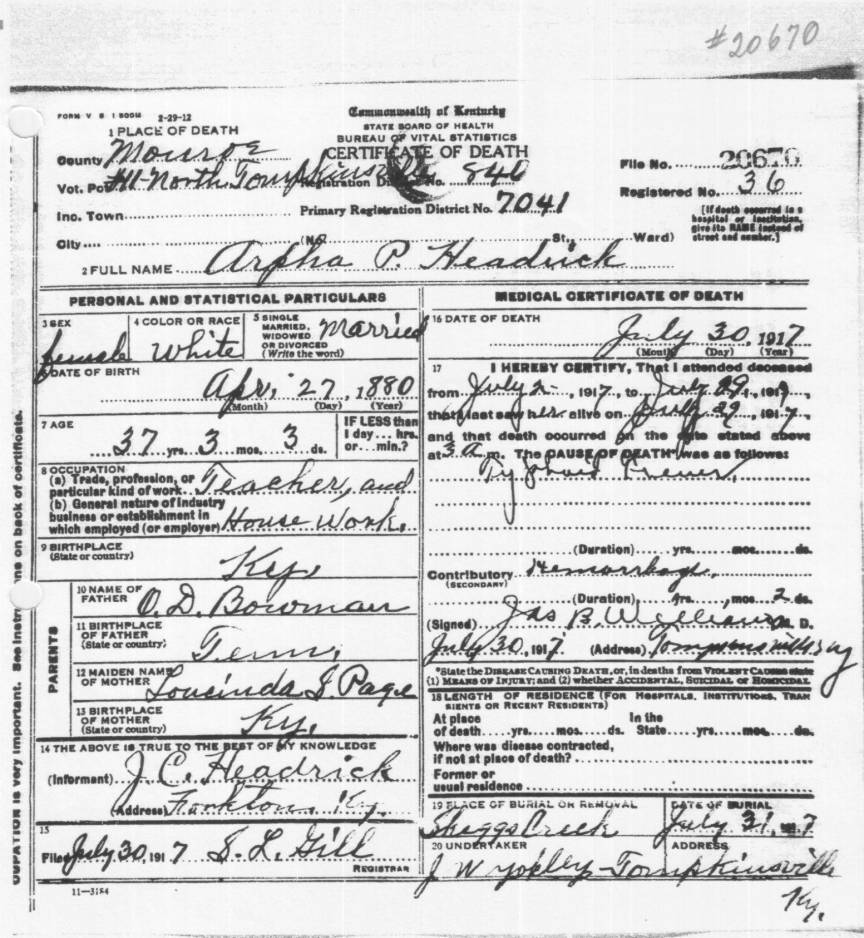 #20670
FORM V. S. 1 500M 2-29-12
Commonwealth of Kentucky
STATE BOARD OF HEALTH
BUREAU OF VITAL STATISTICS
CERTIFICATE OF DEATH
1 PLACE OF DEATH
County Monroe
Vot. Pct #11 North Tompkinsville
Registration District No. 840
Inc. Town
Primary Registration District No. 7041
File No. 20670
Registered No. 36
[If death occurred in a hospital or institution, give its NAME instead of street and number.]
City (No. St., Ward)
2 FULL NAME Arpha P. Headrick
PERSONAL AND STATISTICAL PARTICULARS
3 SEX female
4 COLOR OR RACE White
5 SINGLE MARRIED, WIDOWED OR DIVORCED (Write the word) Married
6 DATE OF BIRTH
Apr. 27, 1880
(Month) (Day) (Year)
7 AGE
37 yrs. 3 mos. 3 ds.
IF LESS than 1 day... hrs. or... min.?
8 OCCUPATION
(a) Trade, profession, or particular kind of work Teacher, and
(b) General nature of industry business or establishment in which employed (or employer) House Work.
9 BIRTHPLACE
(State or country) Ky.
PARENTS
10 NAME OF FATHER O. D. Bowman
11 BIRTHPLACE OF FATHER (State or country) Tenn.
12 MAIDEN NAME OF MOTHER Loucinda J. Page
13 BIRTHPLACE OF MOTHER (State or country) Ky.
14 THE ABOVE IS TRUE TO THE BEST OF MY KNOWLEDGE
(Informant) J. C. Headrick
(Address) Fonkton, Ky.
15
Filed July 30, 1917 S. L. Gill
REGISTRAR
11-3184
MEDICAL CERTIFICATE OF DEATH
16 DATE OF DEATH
July 30, 1917
(Month) (Day) (Year)
17 I HEREBY CERTIFY, That I attended deceased
from July 2, 1917, to July 29, 1917,
that I last saw her alive on July 29, 1917,
and that death occurred on the date stated above
at 3 a m. The CAUSE OF DEATH* was as follows:
Typhoid Fever,
(Duration) yrs. mos. ds.
Contributory Hemorrhage,
(SECONDARY)
(Duration) yrs. mos. 2 ds.
(Signed) Jas B. Williams M. D.
July 30, 1917 (Address) Tompkinsville Ky
*State the DISEASE CAUSING DEATH, or, in deaths from VIOLENT CAUSES state
(1) MEANS OF INJURY; and (2) whether ACCIDENTAL, SUICIDAL or HOMICIDAL
18 LENGTH OF RESIDENCE (FOR HOSPITALS, INSTITUTIONS, TRANSIENTS OR RECENT RESIDENTS)
At place of death yrs. mos. ds. In the State yrs. mos. ds.
Where was disease contracted,
if not at place of death?
Former or
usual residence
19 PLACE OF BURIAL OR REMOVAL DATE OF BURIAL
Skaggs Creek July 31, 1917
20 UNDERTAKER ADDRESS
J W Yokley - Tompkinsville
Ky.
CUPATION is very important. See instructions on back of certificate.